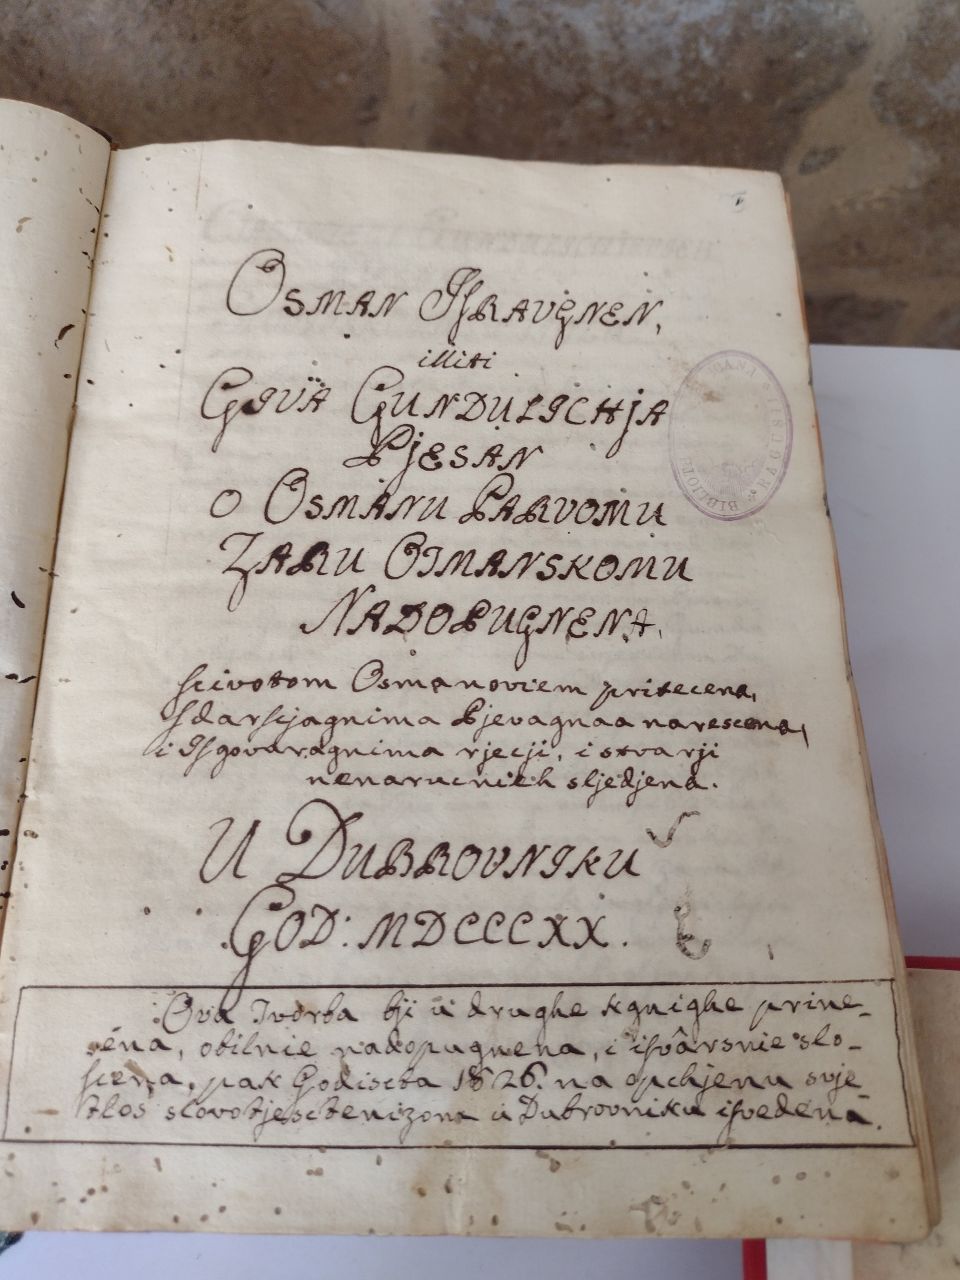 OSMAN ISRAVGNEN,
illiti
GIVA GUNDULICHJA
PJESAN
O OSMANU PARVOMU
ZARU OTMANSKOMU
NADOPUGNENA,
scivotom Osmanoviem pritecena,
sdarscjagnima Pjevagnaa narescena,
i Isgovaragnima rjecji, i stvarji
nenarucnieh sljedjena.
U DUBROVNIKU
GOD: MDCCCXX.
Ova Tvorba bji ù drughe kgnighe prine-
sena, obilnie nadopugnena, i isvârsnie slo-
scena, pak Godiscta 1826. na opchjenu svje
tlos slovotjesctenizom ù Dubrovniku isvedena.
BIBLIOTH
RAGUSII